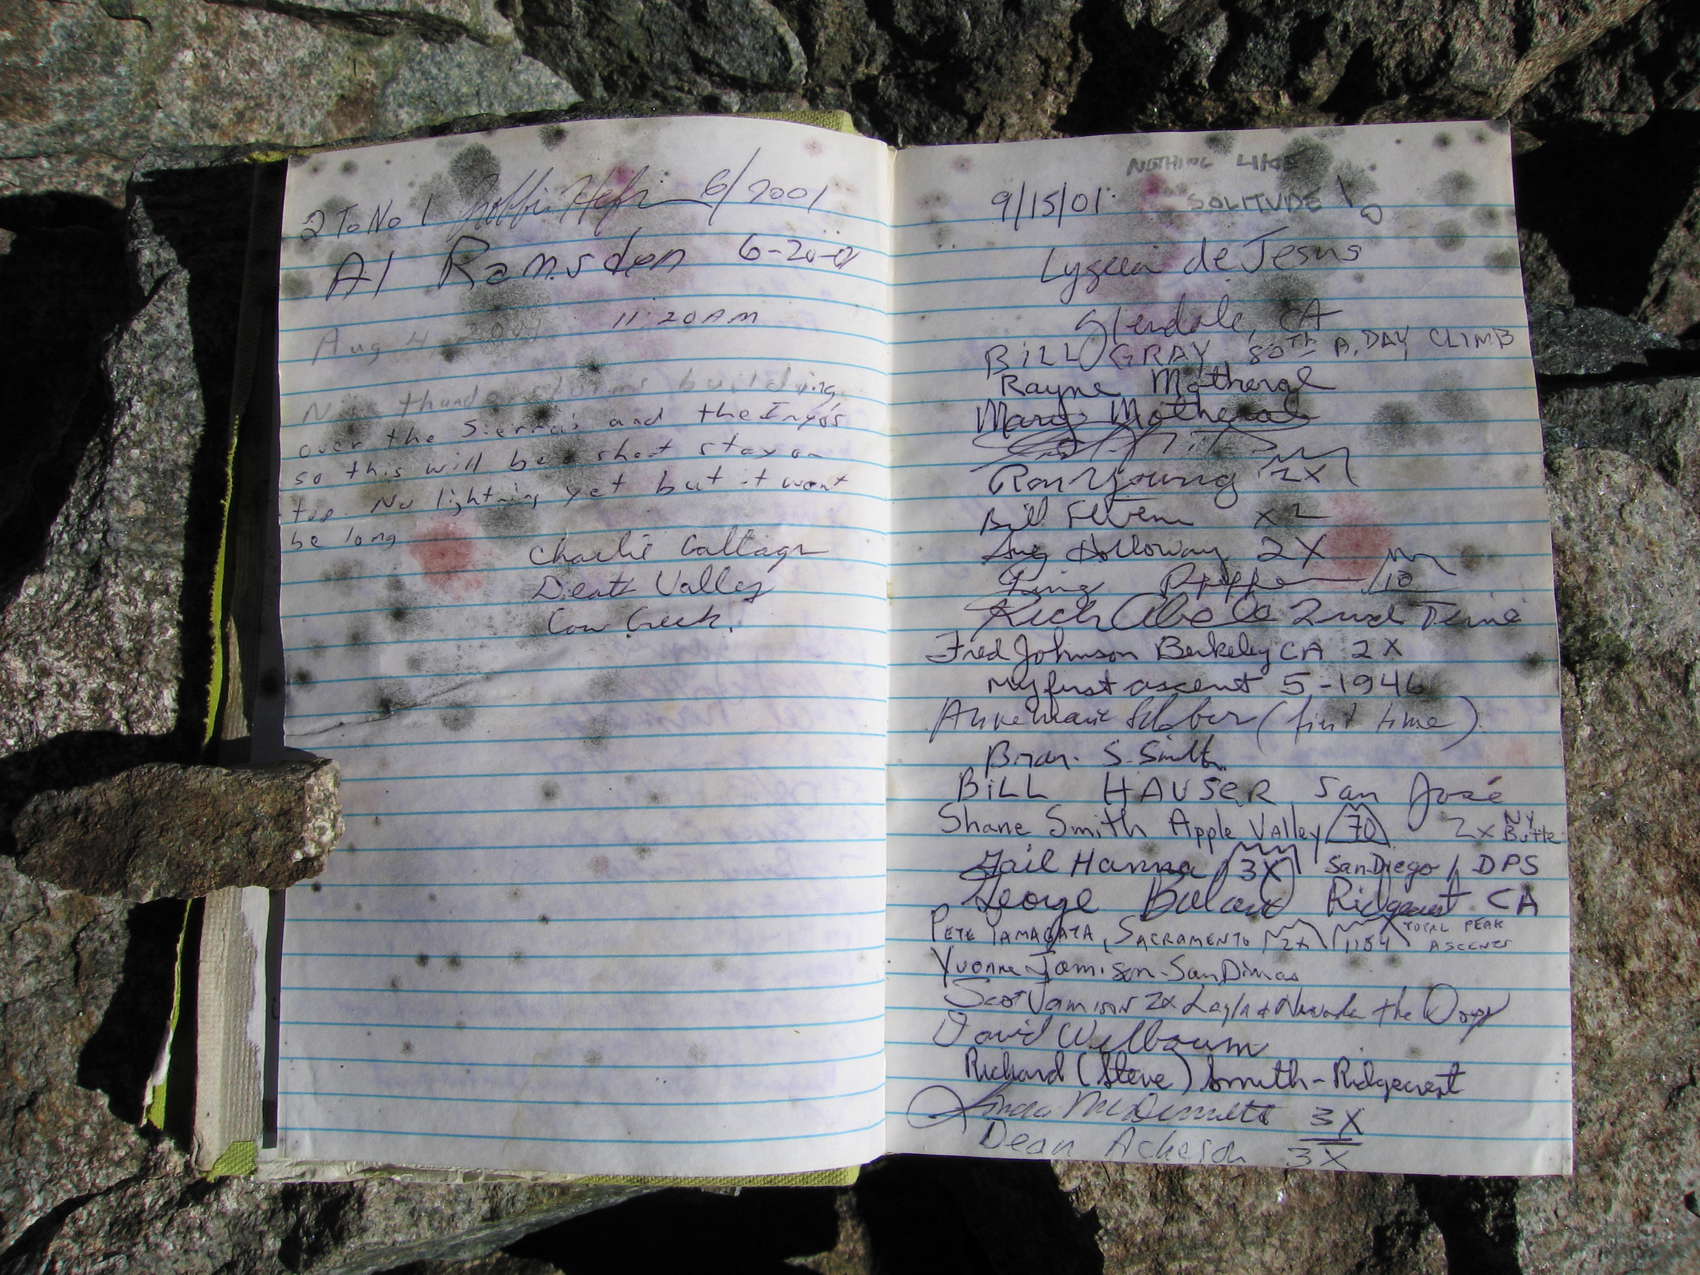 2 To No 1 6/2001
Al Ramsden 6-20-01
11:20 AM
Aug 4 2001
Now thunderstorms building
over the Sierra's and the Inyo's
so this will be a short stay on
top. No lightning yet but it wont
be long
Charlie Callagan
Death Valley
Cow Creek.
NOTHING LIKE
SOLITUDE!
9/15/01
Lygeia de Jesus
Glendale, CA
BILL GRAY 80TH A. DAY CLIMB
Rayne Motheral
Mary Motheral
Ron Young 2X
Bill x2
Holloway 2X
10
Rich 2nd Time
Fred Johnson Berkeley CA 2X
my first ascent 5-1946
Annemarie (first time)
Brian S. Smith
BILL HAUSER San José
Shane Smith Apple Valley 70 2x NY Butte
Gail Hanna 3X San Diego / DPS
George Ridgecrest CA
PETE YAMAGATA, SACRAMENTO 2x 1154 TOTAL PEAK ASCENTS
Yvonne Jamison - San Dimas
Scot Jamison 2x Layla & Nevada the Dogs
David Welbourn
Richard (Steve) Smith - Ridgecrest
Linda McDermott 3X
Dean Acheson 3X